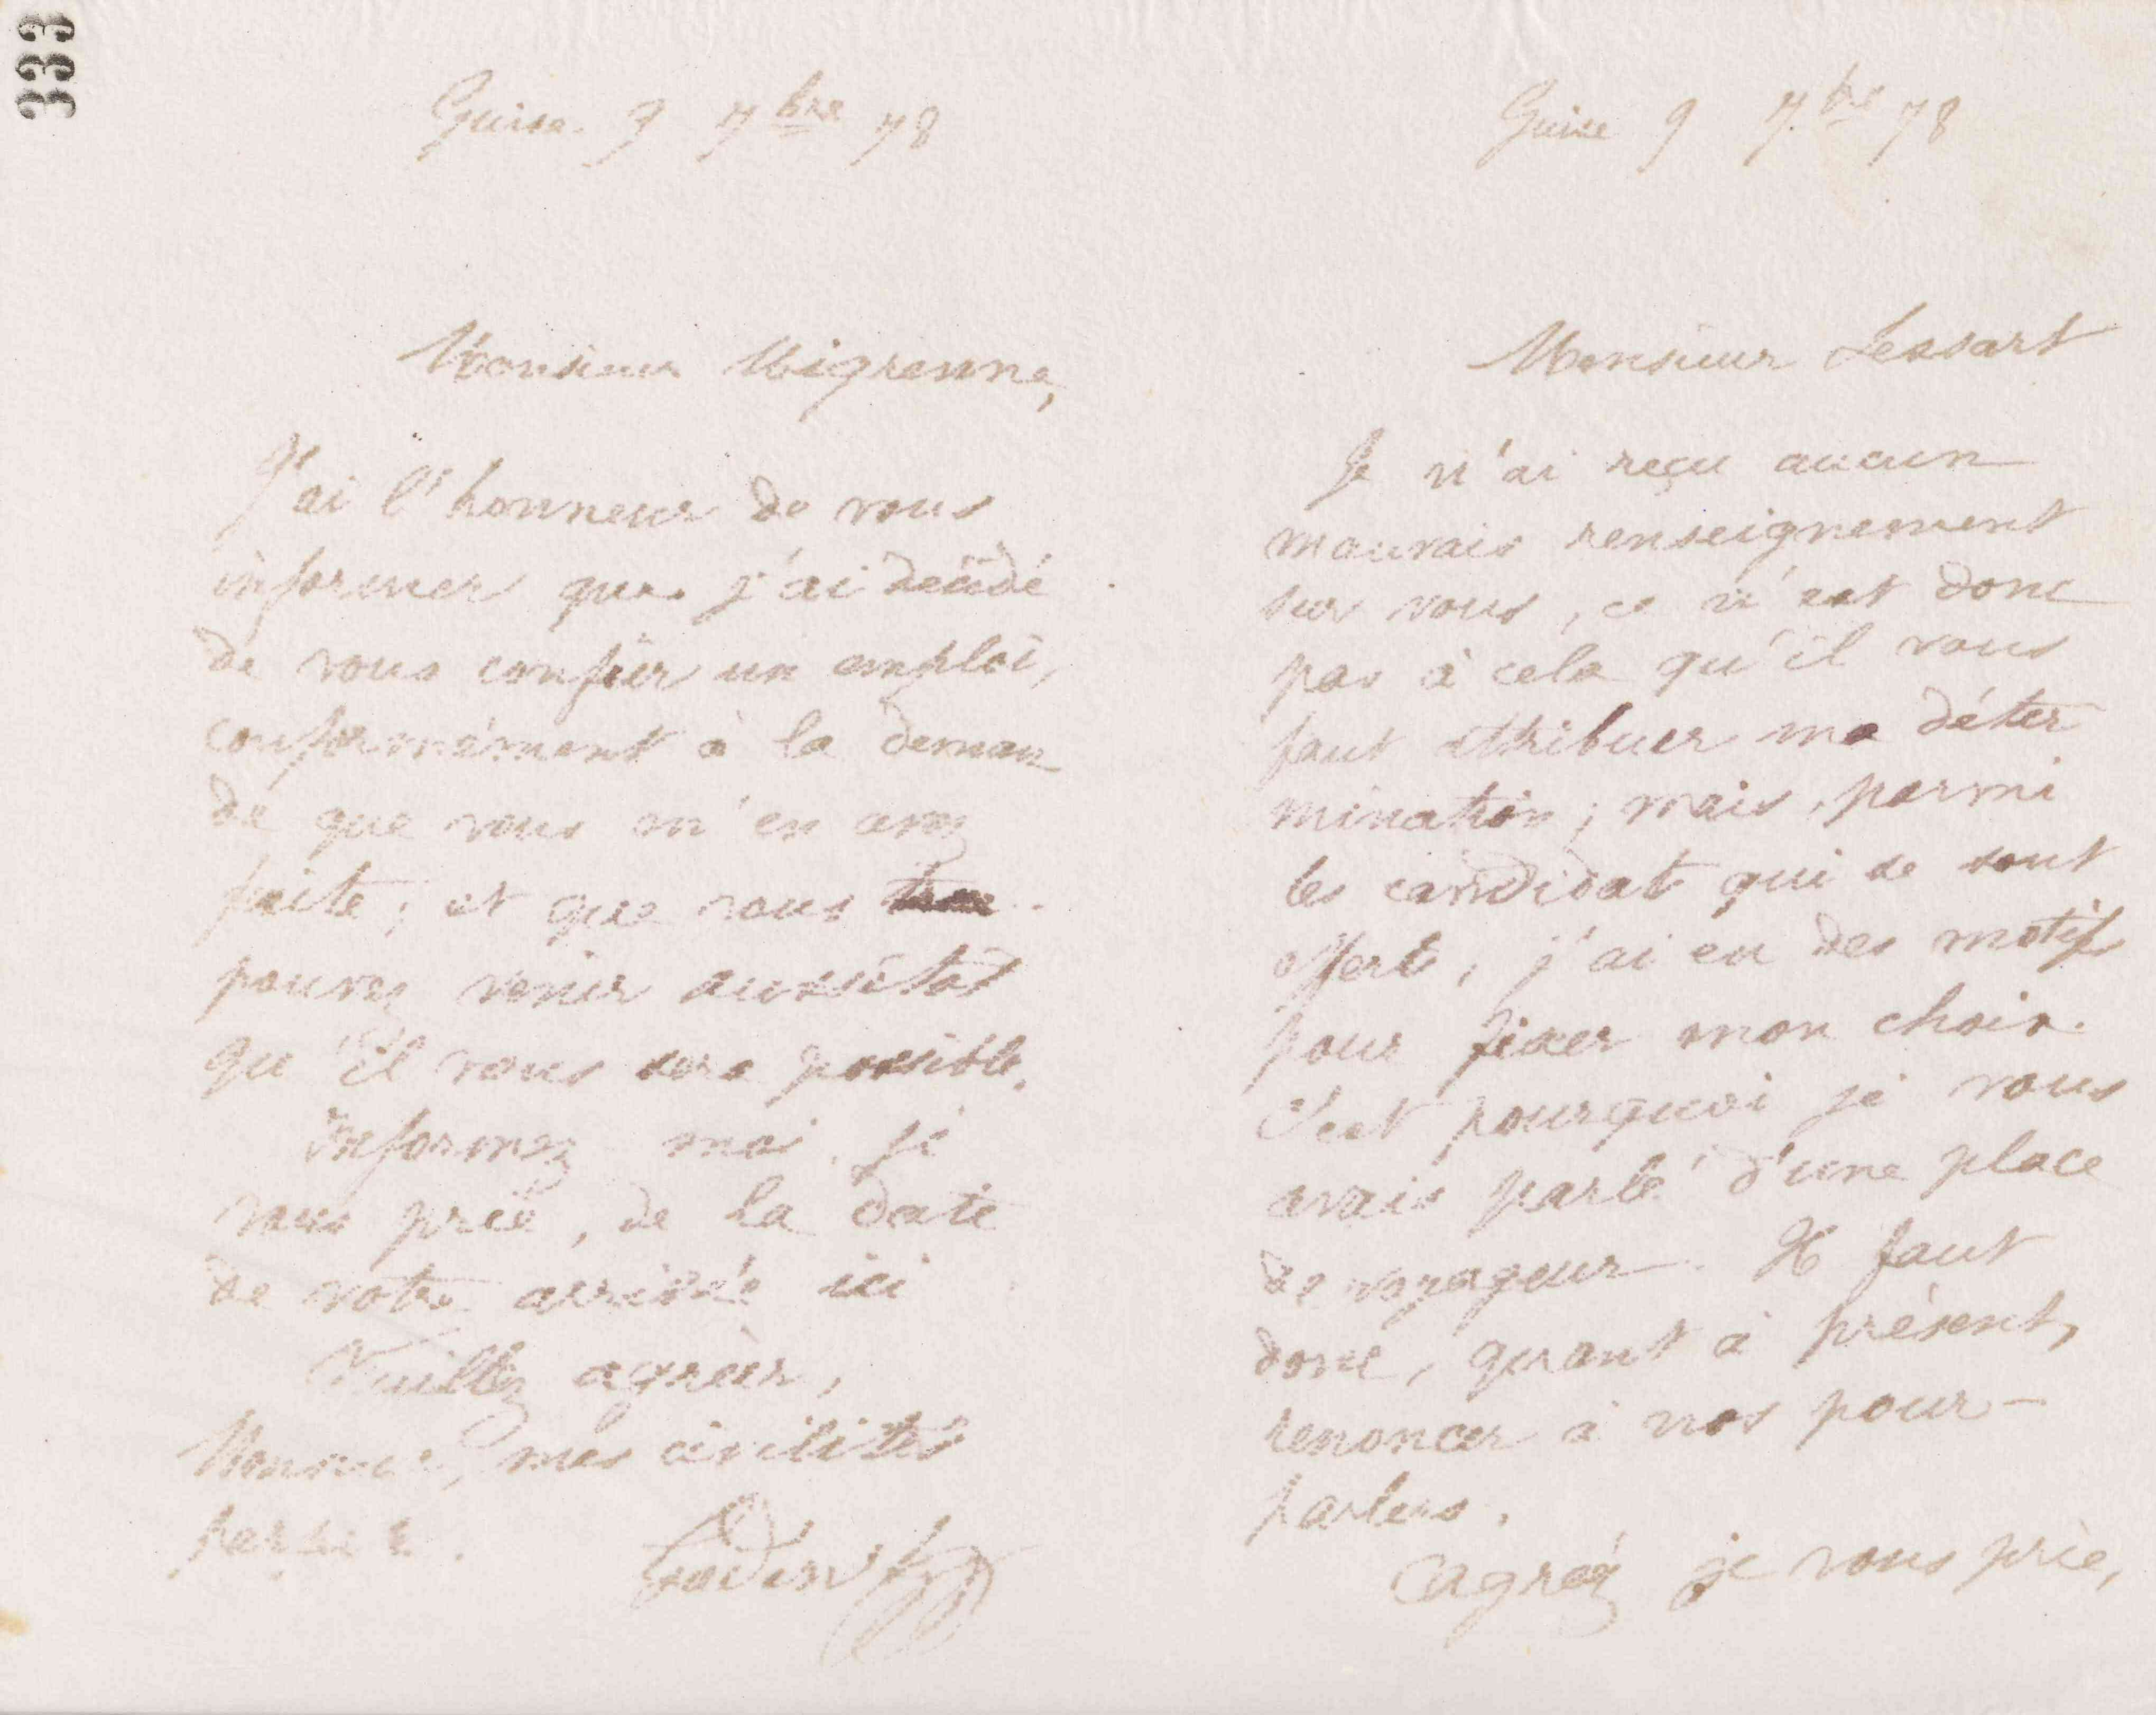 333
Guise 9 7bre 78
Monsieur Migrenne,
J'ai l'honneur de vous
informer que j'ai décidé
de vous confier un emploi,
conformément à la deman
de que vous m'en avez
faite, et que vous
pouvez venir aussitôt
qu'il vous sera possible.
Informez moi, je
vous prie, de la date
de votre arrivée ici
Veuillez agréer,
Monsieur, mes civilités
Godin
Guise 9 7.bre 78
Monsieur Lessart
Je n'ai reçu aucun
mauvais renseignement
sur vous, ce n'est donc
pas à cela qu'il vous
faut attribuer ma déter
mination; mais, parmi
les candidats qui se sont
offerts, j'ai eu des motifs
pour fixer mon choix.
C'est pourquoi je vous
avais parlé d'une place
de voyageur. Il faut
donc, quant à présent,
renoncer à nos pour-
parlers.
Agréez je vous prie,